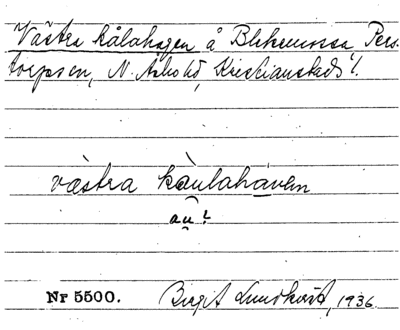 Västra kålahagen å Blekemossa Pers-
torps sn, N. Åsbo hd, Kristianstads l.
västra kàulahaven
au?
Nr 5500. Birgit Lundkvist, 1936.